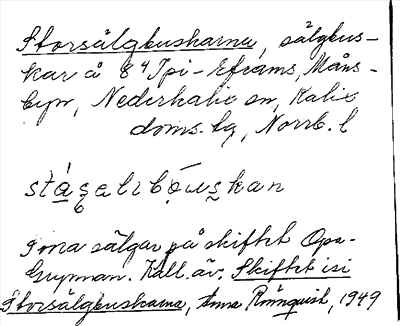 Storsälgbuskarna, sälgbus-
kar å 8⁴ Jpi-Eframs, Måns-
byn, Nederkalix sn, Kalix
doms. lg, Norrb. l
sälgar på skiftet Opa-
Grynnan. Kall. äv. Skiftet isi
Storsälgbuskarna, Anna Rönnqvist, 1949